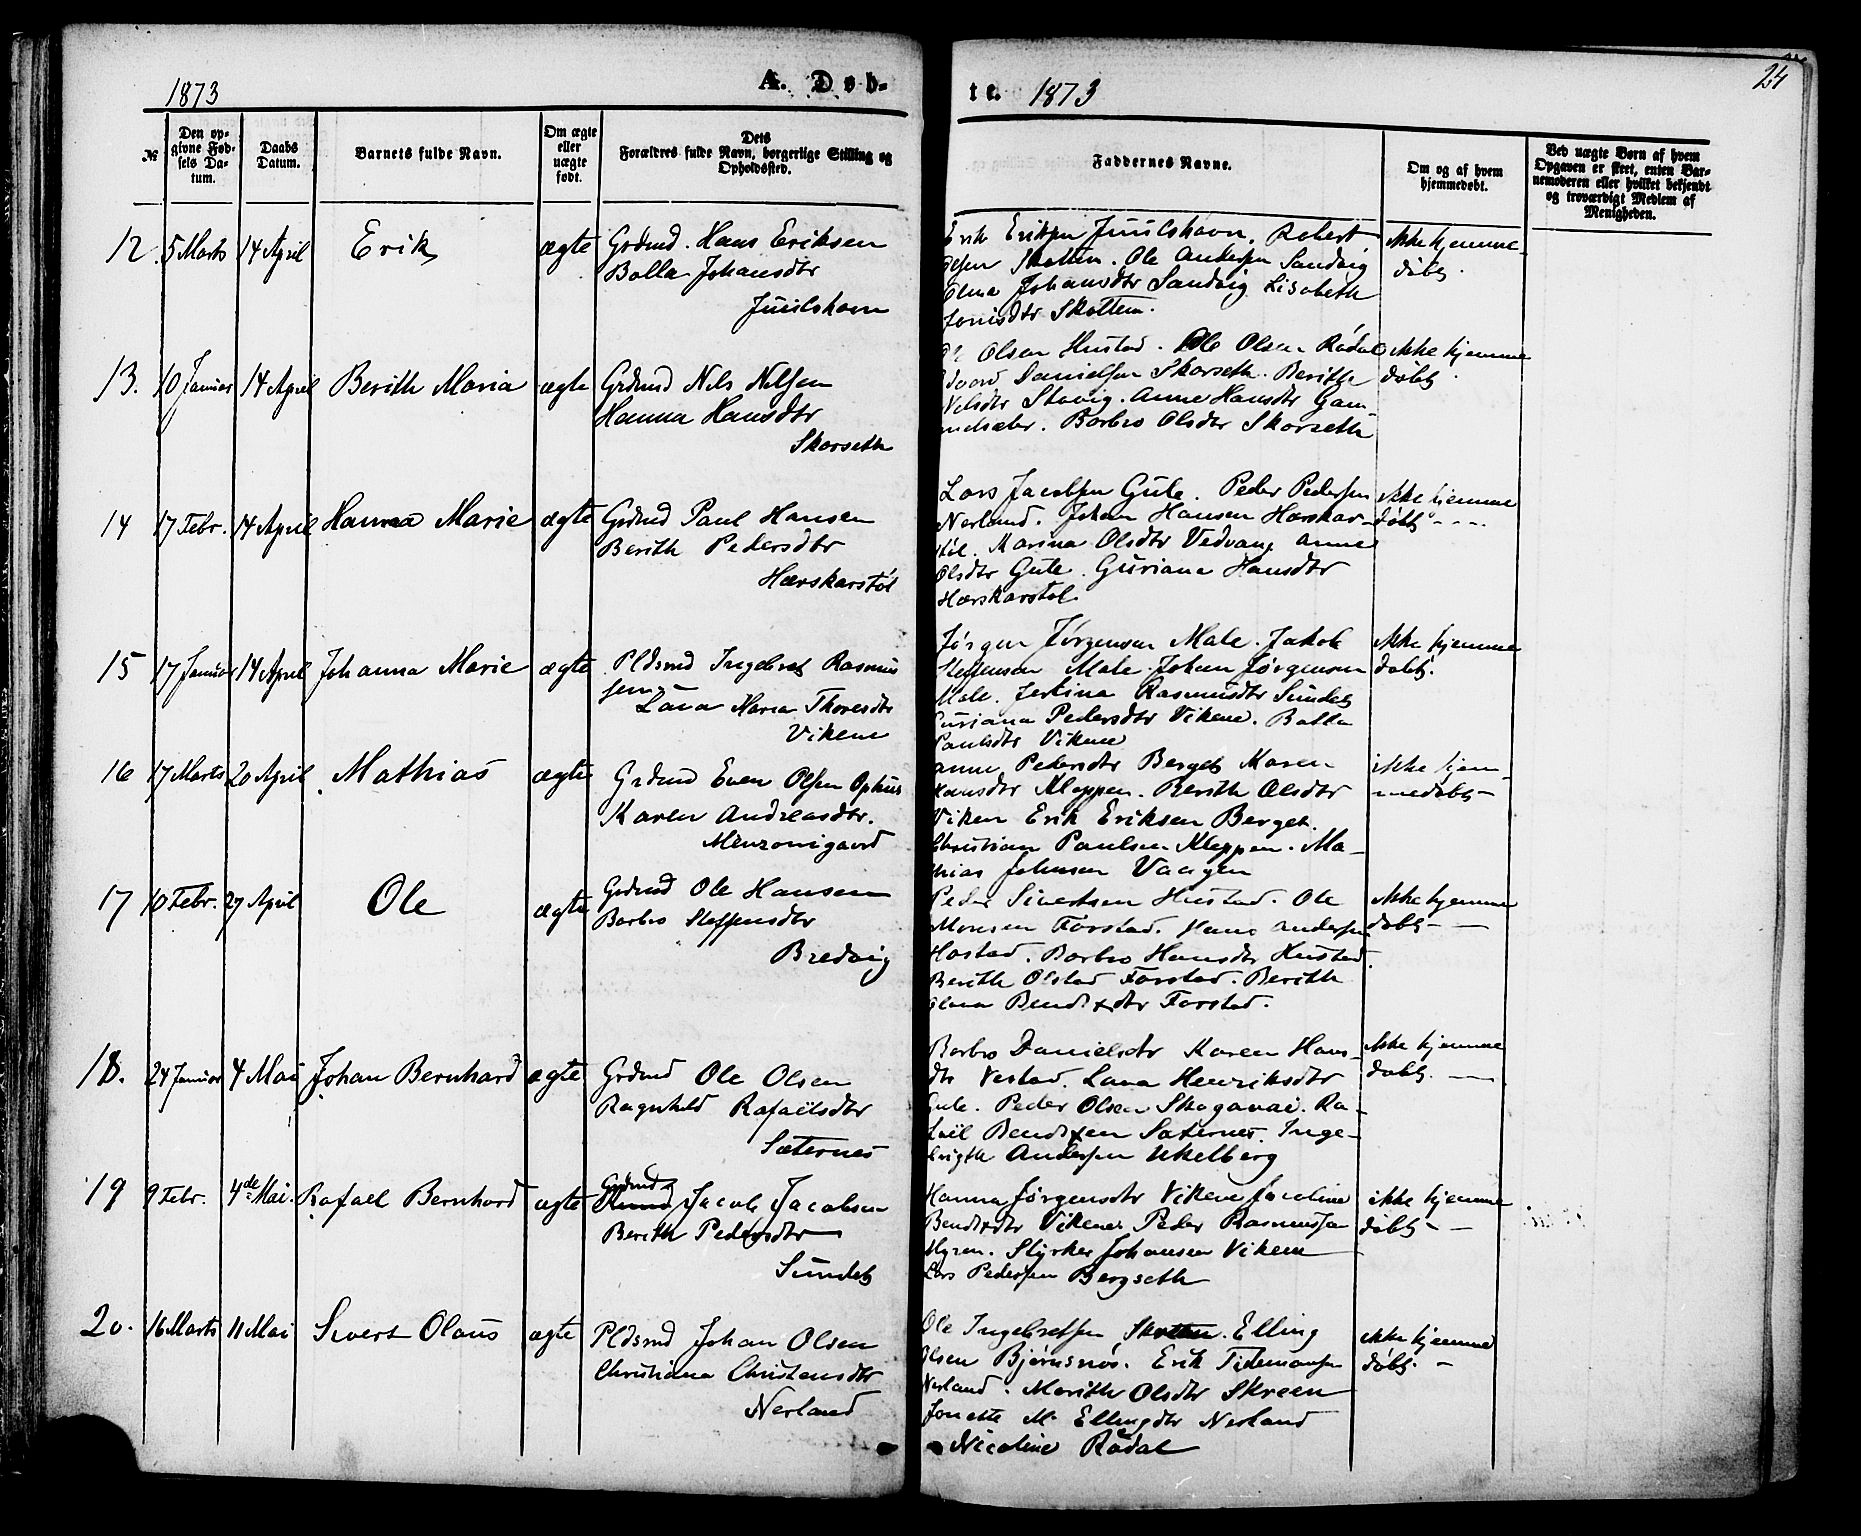 1873
A. Døb-
te. 1873
24
№
Den op-
givne Fød-
sels Da-
tum.
Daabs
Datum.
Barnets fulde Navn.
Om ægte
eller
uægte
født.
Dets
Forældres fulde Navn, borgerlige Stilling og
Opholdssted.
Faddernes Navne.
Om og af hvem
hjemmedøbt.
Ved uægte Børn af hvem
Opgaven er skeet, enten Bar-
nemoderen eller hvilket bekjendt
og troværdigt Medlem af
Menigheden.
12 5 Marts 14 April Erik ægte Grdmd. Hans Eriksen
Balla Johansdtr
Juulshavn
Erik Eriksen Juulshavn. Robert
Olsen Skotten. Ole Andersen Sandvig
Johansdtr Sandvig Lisabeth
Jonisdtr Skottem.
ikke hjemme-
døbt.
13. 10 Januar 14 April Berith Maria ægte Grdmd Nils Nilsen
Hanna Hansdtr
Skorseth
Olsen Hustad. Ole Olsen Rødal
Danielsen Skorseth. Berithe
Nilsdtr Stavig. Anne Hansdtr Gam-
melsæter. Barbro Olsdtr Skorseth
ikke hjemme
døbt.
14 17 Febr. 14 April Hanna Marie ægte Grdmd Paul Hansen
Berith Pedersdtr
Hærskarstøl
Lars Jacobsen Gule. Peder Pedersen
Nerland. Johan Hansen Hærskar-
støl. Marina Olsdtr Vedvang Anne
Olsdtr Gule. Guriana Hansdtr
Hærskarstøl
ikke hjemme
døbt - - - -
15 17 Januar 14 April Johanna Marie ægte Pldsmd Ingebret Rasmus
sen
Lava Maria Thoresdtr
Vikene
Jørgen Jørgensen Male. Jakob
Steffensen Male. Johan Jørgensen
Male. Jertina Rasmusdtr Sundet
Guriana Pedersdtr Vikene. Balla
Paulsdtr Vikene
ikke hjemme
døbt.
16 17 Marts 20 April Mathias ægte Grdmd Even Olsen Ophus
Karen Andreasdtr.
Anne Pedersdtr Berget Karen
Hansdtr Kleppen. Berith Olsdtr
Viken Erik Eriksen Berget.
Christian Paulsen Kleppen. Ma-
thias Johnsen Vaagen
ikke hjem-
medøbt -
17 10 Febr. 27 April Ole ægte Grdmd Ole Hansen
Barbro Steffensdtr
Bredvig
Peder Sivertsen Hustad. Ole
Monsen Farstad. Hans Andersen
Hostad. Barbro Hansdtr Hustad.
Berith Olsdtr Farstad. Berith
Olava Bendixdtr Farstad.
ikke hjemme
døbt - -
18. 24 Januar 4 Mai Johan Bernhard ægte Grdmd Ole Olsen
Ragnhild Rafaelsdtr
Sæternes
Barbro Danielsdtr Karen Hans-
dtr Vestad. Lava Henriksdtr
Gule. Peder Olsen Ra-
fael Bendixen Sæternes. Inge-
brigth Andersen Ukelberg
ikke hjemme
døbt. -
19 9 Febr. 4de Mai. Rafael Bernhard ægte Grdmd Jacob Jacobsen
Berith Pedersdtr
Sundet
Hanna Jørgensdtr Vikene Jacoline
Bendixdtr Vikene Peder Rasmussen
Myren. Styrker Johansen Vikene
Lars Pedersen Bergseth
ikke hjemme
døbt - -
20. 16 Marts 11 Mai Sivert Olaus ægte Pldsmd Johan Olsen
Christiana Christensdtr
Nerland
Ole Ingebretsen Skotten. Elling
Olsen Bjørnsnøs. Erik Tidemansen
Nerland. Marith Olsdtr Skreen
Jonette M. Ellingdtr Nerland
Nicoline Rødal
ikke hjemme
døbt. -